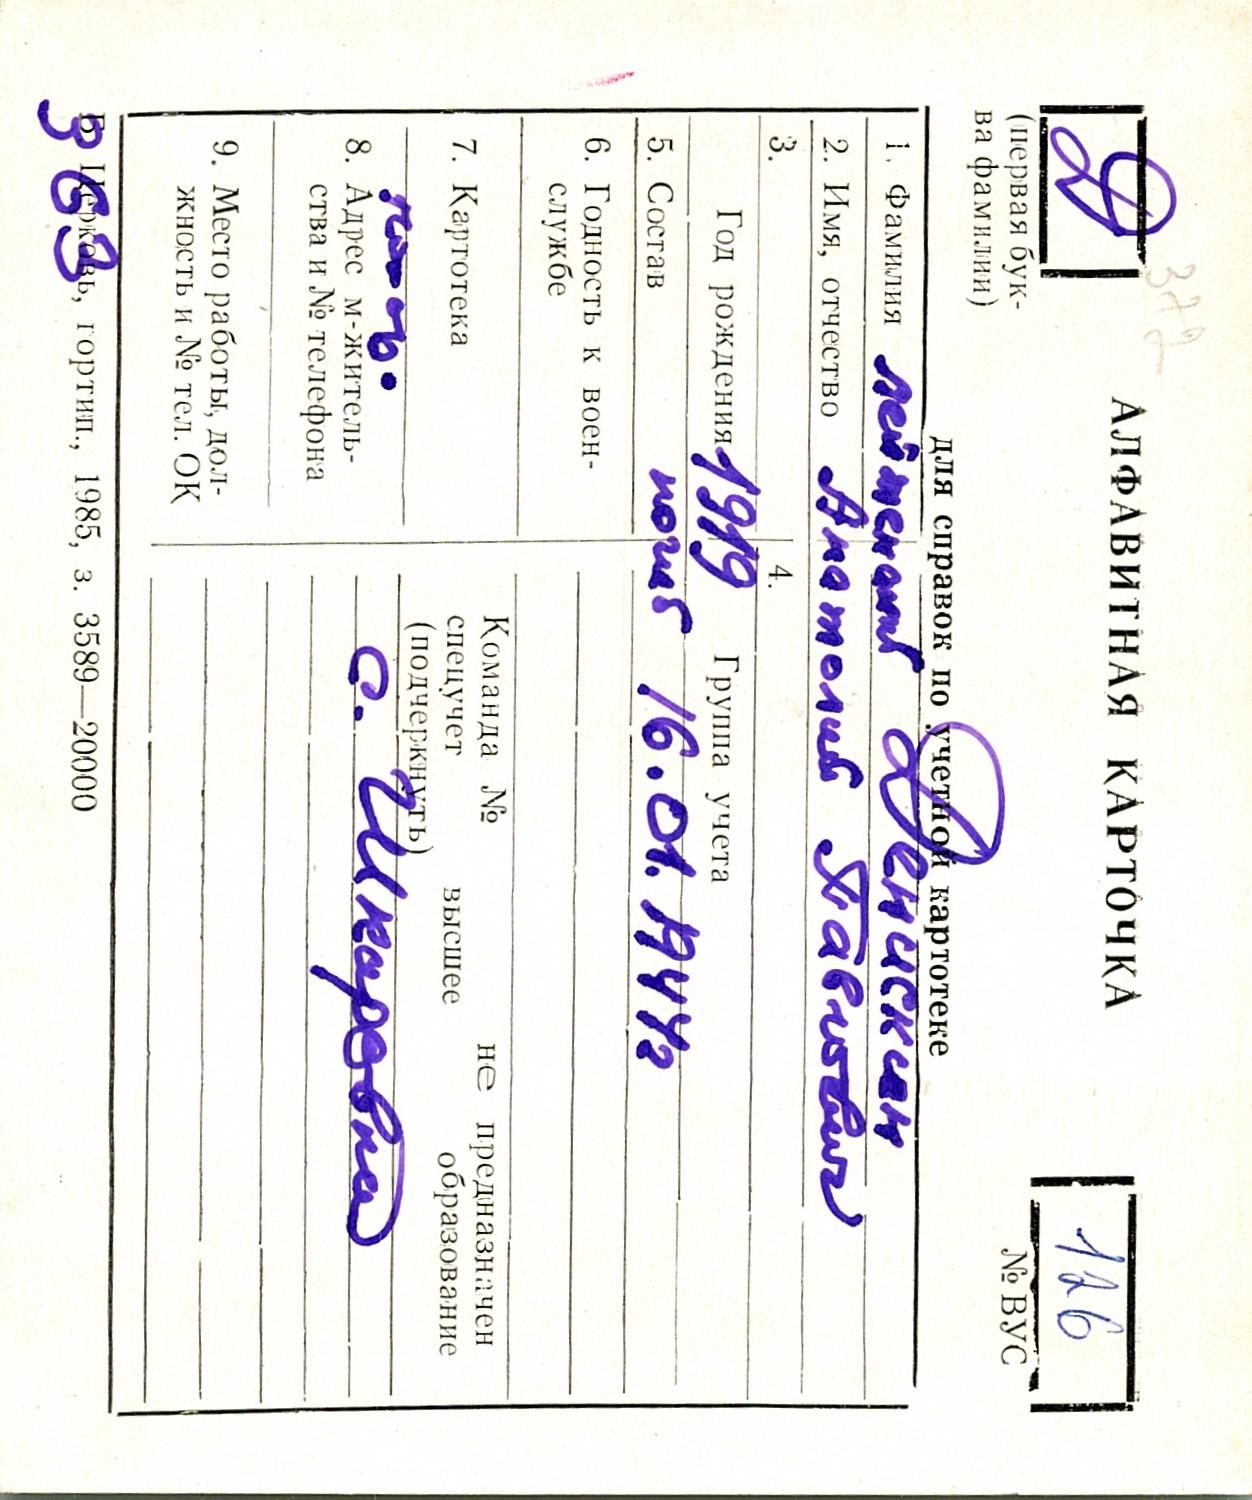 Д
(первая бук-
ва фамилии)
372
АЛФАВИТНАЯ КАРТОЧКА
для справок по учетной картотеке
126
№ ВУС
1. Фамилия лейтенант Денискин
2. Имя, отчество Анатолий Павлович
3.
4.
Год рождения 1919 Группа учета
5. Состав погиб 16.01.1944г
6. Годность к воен-
службе
7. Картотека
Команда № не предназначен
спецучет высшее образование
(подчеркнуть)
8. Адрес м-житель-
ства и № телефона
с. Шкаровка
9. Место работы, дол-
жность и № тел. ОК
Б Церковь, гортип., 1985, з. 3589—20000
363